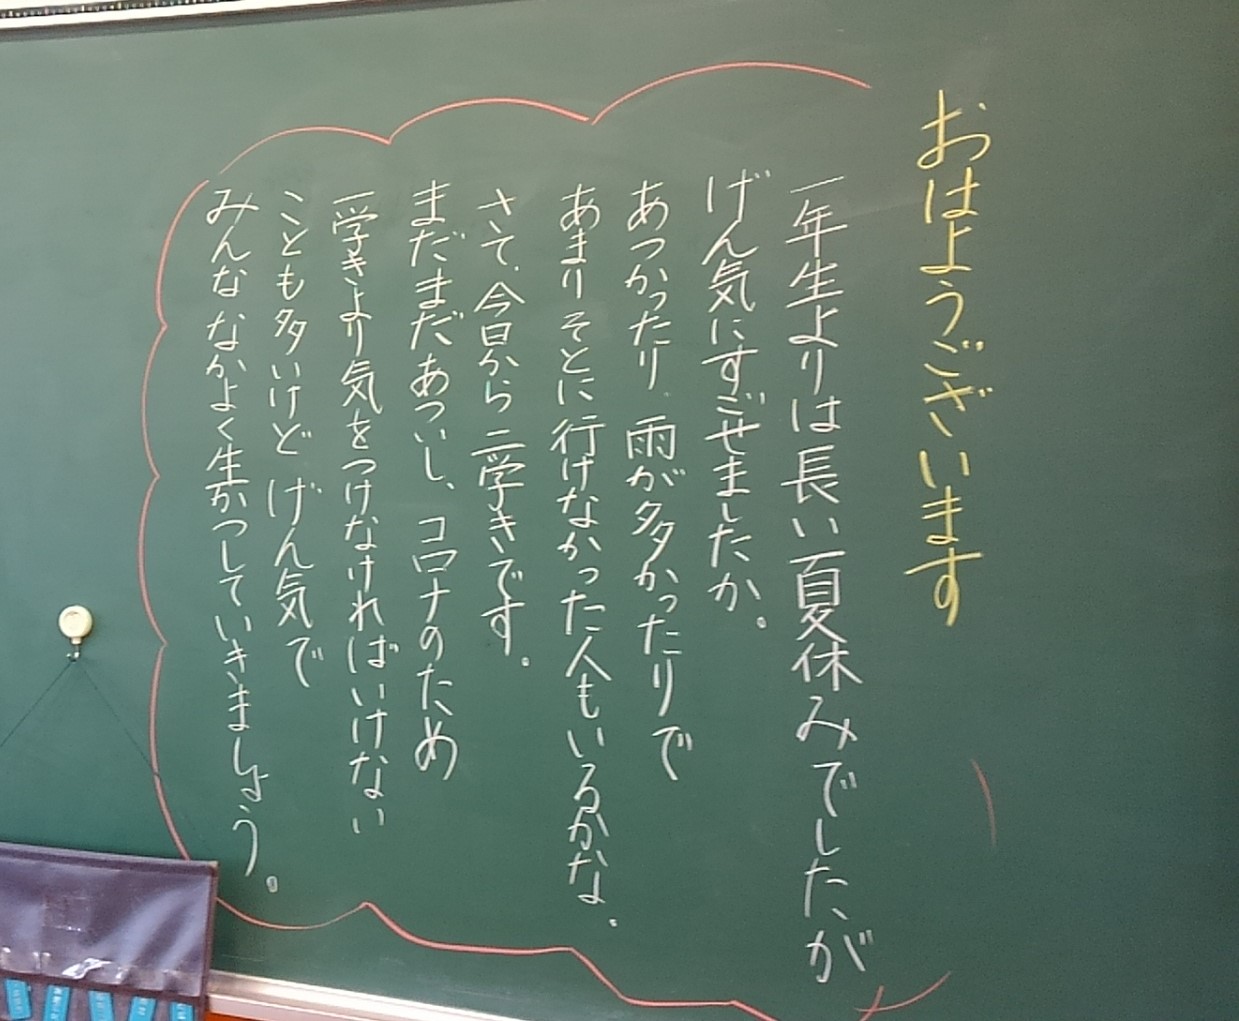 おはようございます
一年生よりは長い夏休みでしたが
げん気にすごせましたか。
あつかったり、雨が多かったりで
あまりそとに行けなかった人もいるかな。
さて、今日から二学きです。
まだまだあついし、コロナのため
一学きより気をつけなければいけない
ことも多いけど げん気で
みんななかよく生かつしていきましょう。